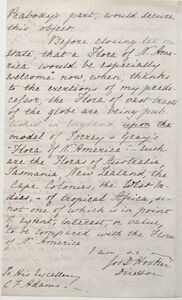 Peabody's part, would secure
this object.
Before closing let me
state, that a Flora of N. Ame-
rica would be especially
welcome now when thanks
to the exertions of my prede-
cessor, the Flora of vast tracts
of the globe are being pub-
upon the
model of Torrey & Gray's
"Flora of N. America" – Such
are the Floras of Australia
Tasmania, New Zealand, the
Cape Colonies, the West In-
dies, & of tropical Africa, &
not one of which is in point
of extent, interest, or value
to be compared with the Flora
of N. America
I am &c
Jos. D. Hooker
Director
To His Excellency
C. F. Adams.